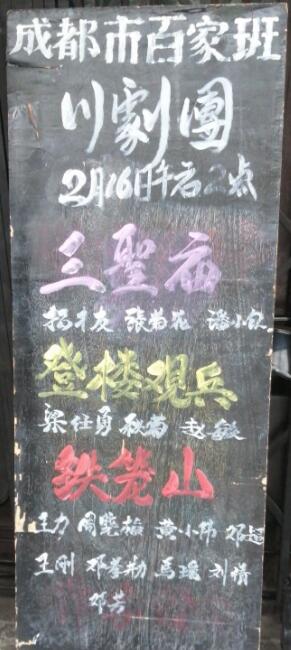 成都市百家班
川劇團
2月16日午后2点
三聖庙
杨才友 張菊花 潘小釵
登楼观兵
梁仕勇 秋菊 赵敏
铁笼山
王力 周楚梅 黄小伟 邓超
王刚 邓孝勒 馬瑶 刘情
邓芳